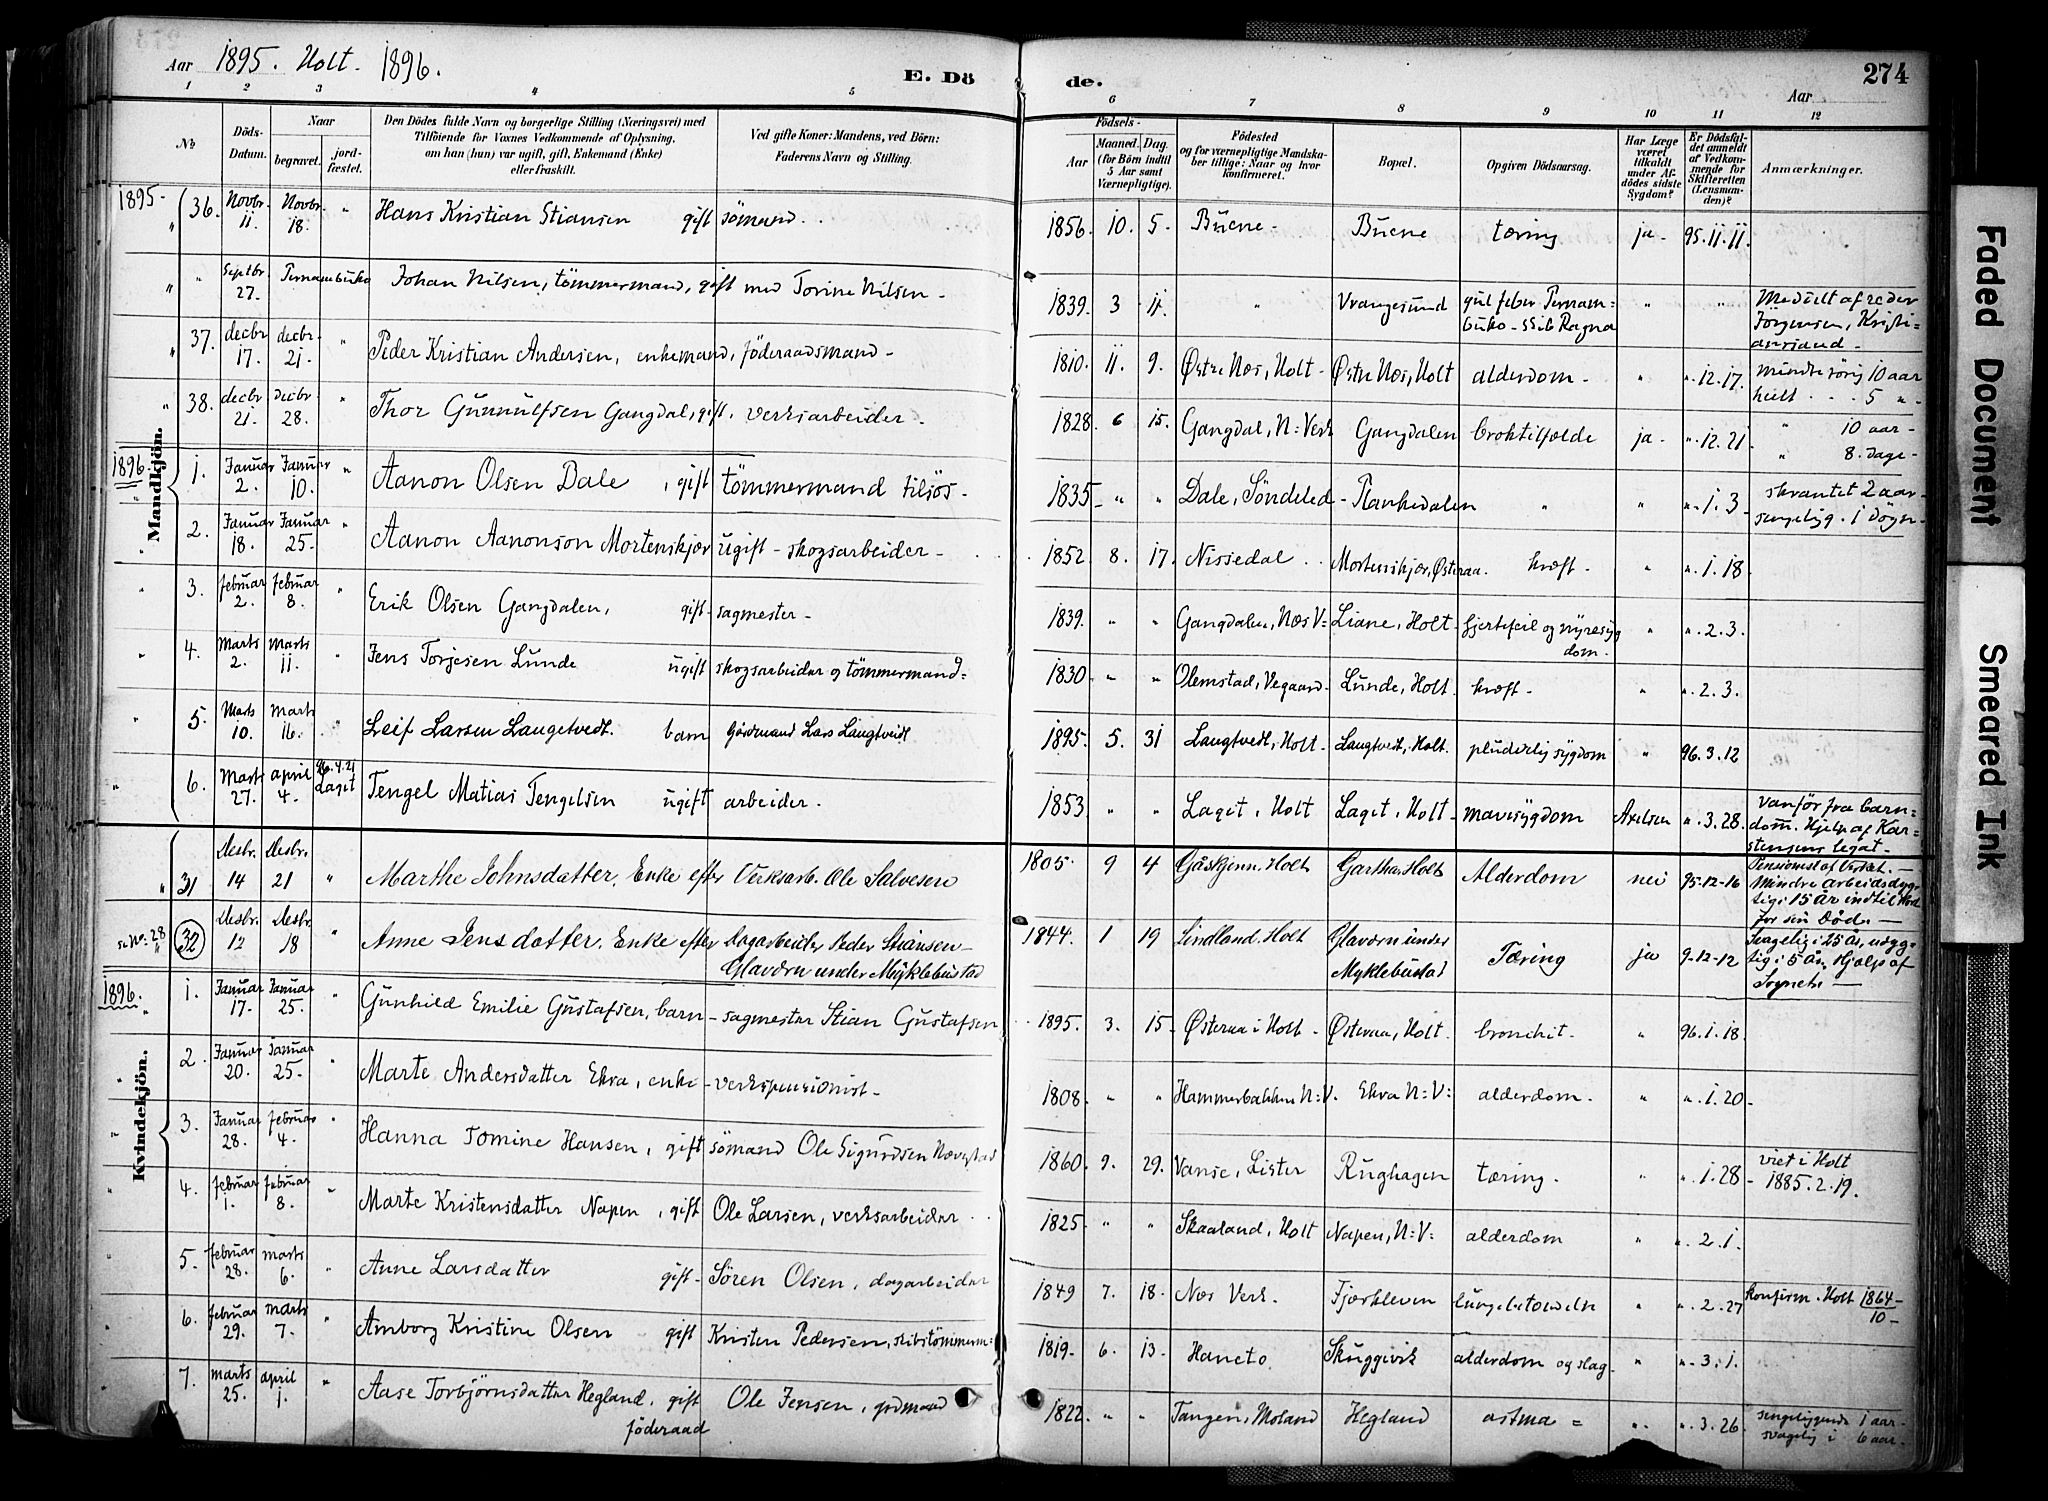 Aar 1895. Holt. 1896.
E. Dö de.
274
Aar
1 2 3 4 5 6 7 8 9 10 11 12
№
Döds-Datum.
Naar
begravet.
jordfæstet.
Den Dödes fulde Navn og borgerlige Stilling (Næringsvei) med
Tilföiende for Voxnes Vedkommende af Oplysning,
om han (hun) var ugift, gift, Enkemand (Enke)
eller fraskilt.
Ved gifte Koner: Mandens, ved Börn:
Faderens Navn og Stilling.
Födsels-
Aar
Maaned. Dag.
(for Börn indtil
5 Aar samt
Værnepligtige).
Födested
og for værnepligtige Mandskaber tillige: Naar og hvor
konfirmeret.
Bopæl.
Opgiven Dödsaarsag.
Har Læge
været
tilkaldt
under Afdödes sidste
Sygdom?
Er Dödsfaldet anmeldt
af Vedkommende for
Skifteretten
(Lensmanden)?
Anmærkninger.
Mandkjön.
1895- " 36. Novbr. 11. Novbr. 18. " Hans Kristian Stiansen gift sömand. 1856. 10. 5. Buene- Buene tæring ja- 95.11.11.
" " Septbr. 27. Pernambuko Johan Nilsen, tömmermand, gift med Torine Nilsen- 1839. 3 4. " Vrangesund gul feber Pernam=
buko- skib Ragna " " Meddelt af reder
Jörgensen, Kristi=
anssand-
" 37. decbr 17. decbr- 21- " Peder Kristian Andersen, enkemand, föderaadsmand- 1810. 11. 9. Østre Næs, Holt- Østre Næs, Holt alderdom- " ".12.17. mindre rörig 10 aar
helt . . . 5 "-
" 38. decbr 21. decbr- 28. " Thor Gunnulfsen Gangdal, gift, verksarbeider. 1828. 6 15. Gangdal, N:Verk Gangdalen broktilfælde ja- ".12.21. " 10 aar-
" 8. dage-
1896- 1. Januar 2. Januar 10. " Aanon Olsen Dale, gift tömmermand tilsös- 1835- " " Dale, Söndeled- Plankedalen " " ".1.3. skrantet 2 aar-
sengelig. 1 Dögn-
" 2. Januar 18. Januar 25. " Aanon Aanonson Mortenskjær ugift- skogsarbeider- 1852. 8. 17. Nissedal. Mortenskjær, Østeraa. kræft. " ".1.18.
" 3. februar 2. februar 8. " Erik Olsen Gangdalen, gift- sagmester- 1839. " " Gangdalen, Næs V= Liane, Holt- hjertefeil og nyresyg
dom. " ".2.3.
" 4. Marts 2. Marts 11. " Jens Torjesen Lunde ugift skogsarbeider og tömmermand= 1830- " " Olimstad, Vegaard- Lunde, Holt. kræft- " ".2.3.
" 5. Marts 10. Marts 16. " Leif Larsen Langetvedt. barn Gårdmand Lars Langtvedt 1895. 5. 31 Langtvedt, Holt- Langtvedt, Holt. pludselig sygdom " 96.3.12
" 6. Marts 27. april 4. 96.4.21 Laget Tengel Matias Tengelsen ugift arbeider. 1853 " " Laget, Holt Laget, Holt- mavesygdom Axelsen ".3.28. vanför fra barn-
dom. Hjelp af Kar=
stensens legat-
Kvindekjön.
" 31 Desbr. 14 Desbr. 21 " Marthe Johnsdatter. Enke efter Verksarb. Ole Salvesen 1805. 9 4 Gåskjenn. Holt Gartha. Holt Alderdom nei 95-12-16 Pensionist af Verket.-
Mindre arbeidsdyg-
tig i 15 År indtil kort
for sin Död.-
se No: 28 " (32) Desbr. 12 Desbr. 18 " Anne Jensdatter. Enke efter Dagarbeider Peder Stiansen-
Glaværn under Myklebustad 1844. 1 19 Lindland. Holt Glaværn under
Myklebustad Tæring ja 9-12-12 Svagelig i 25 År, udyg-
tig i 5 År. Hjælp af
Sognet.-
1896. " 1. Januar 17. Januar 25. " Gunhild Emilie Gustafsen, barn- sagmester Stian Gustafsen 1895. 3. 15- Østeraa i Holt- Østeraa, Holt. bronchit- " 96.1.18.
" 2. Januar 20. Januar 25. " Marte Andersdatter Ekra, enke- verkspensionist- 1808. " " Hammerbakken N:V. Ekra N:V: alderdom. " ".1.20-
" 3. Januar 28. februar 4. " Hanna Tomine Hansen, gift sömand Ole Sigurdsen Nævestad 1860. 9. 29. Vanse, Lister Rughagen tæring. " ".1.28- viet i Holt
1885.2.19.
" 4. februar 1. februar 8. " Marte Kristensdatter Napen, gift Ole Larsen, verksarbeider. 1825. " " Skaaland, Holt Napen, N:V: alderdom " ".2.1.
" 5. februar 28. marts 6. " Anne Larsdatter gift- Sören Olsen, dagarbeider 1849 7. 18. Næs Verk. Fjærkleven lungebetændelse " ".2.27 konfirm. Holt 1864-
10-
" 6. februar 29. marts 7. " Amborg Kristine Olsen gift Kristen Pedersen, skibstömmerm= 1819- 6. 13- Haneto Skuggevik alderdom og slag- " ".3.1.
7. marts 25. april 1. " Aase Torbjörnsdatter Hegland, gift
föderaad Ole Jensen, grdmand 1822. " " Tangen, Moland Hegland astma = " ".3.26. sengeliggende 1 aar-
svagelig i 6 aar-
Faded Document
Smeared Ink